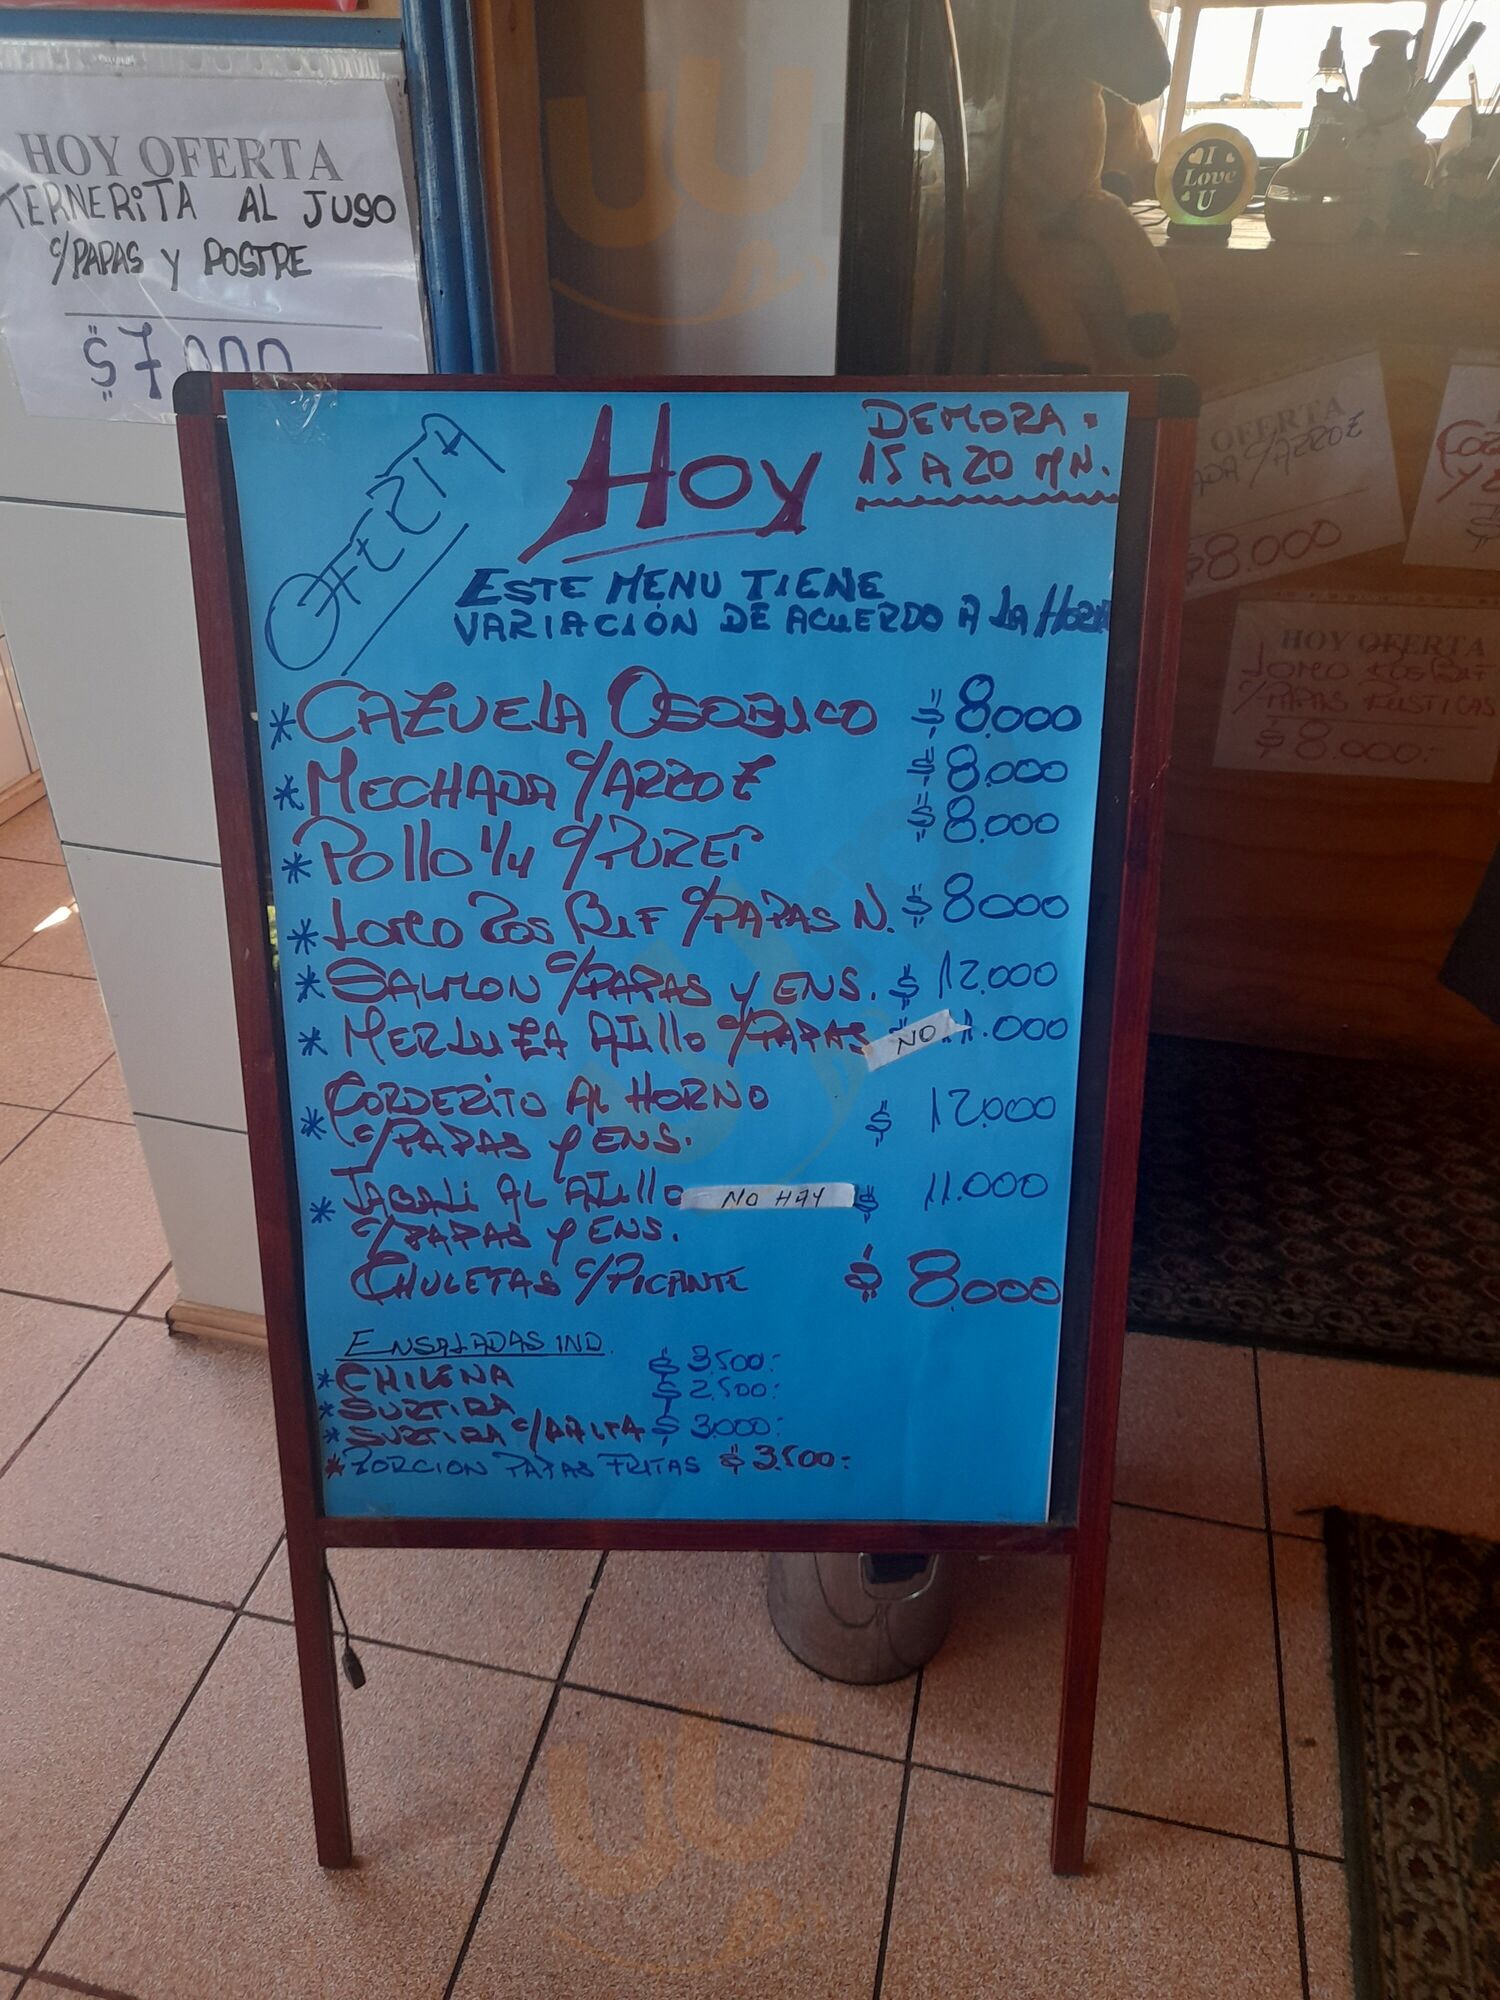 HOY OFERTA
TERNERITA AL JUGO
C/PAPAS Y POSTRE
$7.000
OFERTA
HOY
DEMORA:
15 A 20 MN.
ESTE MENU TIENE
VARIACIÓN DE ACUERDO A LA HORA
* CAZUELA OSOBUCO $8.000
* MECHADA C/ARROZ $8.000
* POLLO 1/4 C/PURE $8.000
* LOMO ROS BIF C/PAPAS N. $8000
* SALMON C/PAPAS Y ENS. $12.000
* MERLUZA AJILLO C/PAPAS NO .000
* CORDERITO AL HORNO $12.000
C/PAPAS Y ENS.
* JABALI AL AJILLO NO HAY $ 11.000
C/PAPAS Y ENS.
CHULETAS C/PICANTE $8.000
ENSALADAS IND.
* CHILENA $3.500:
* SURTIRA $2.500:
* SURTIRA C/PALTA $3.000:
* PORCION PAPAS FRITAS $3.500:
I
Love
U
OFERTA
ADA C/ARROZ
$8.000
HOY OFERTA
LOMO ROS BIF
C/PAPAS RUSTICAS
$8.000: